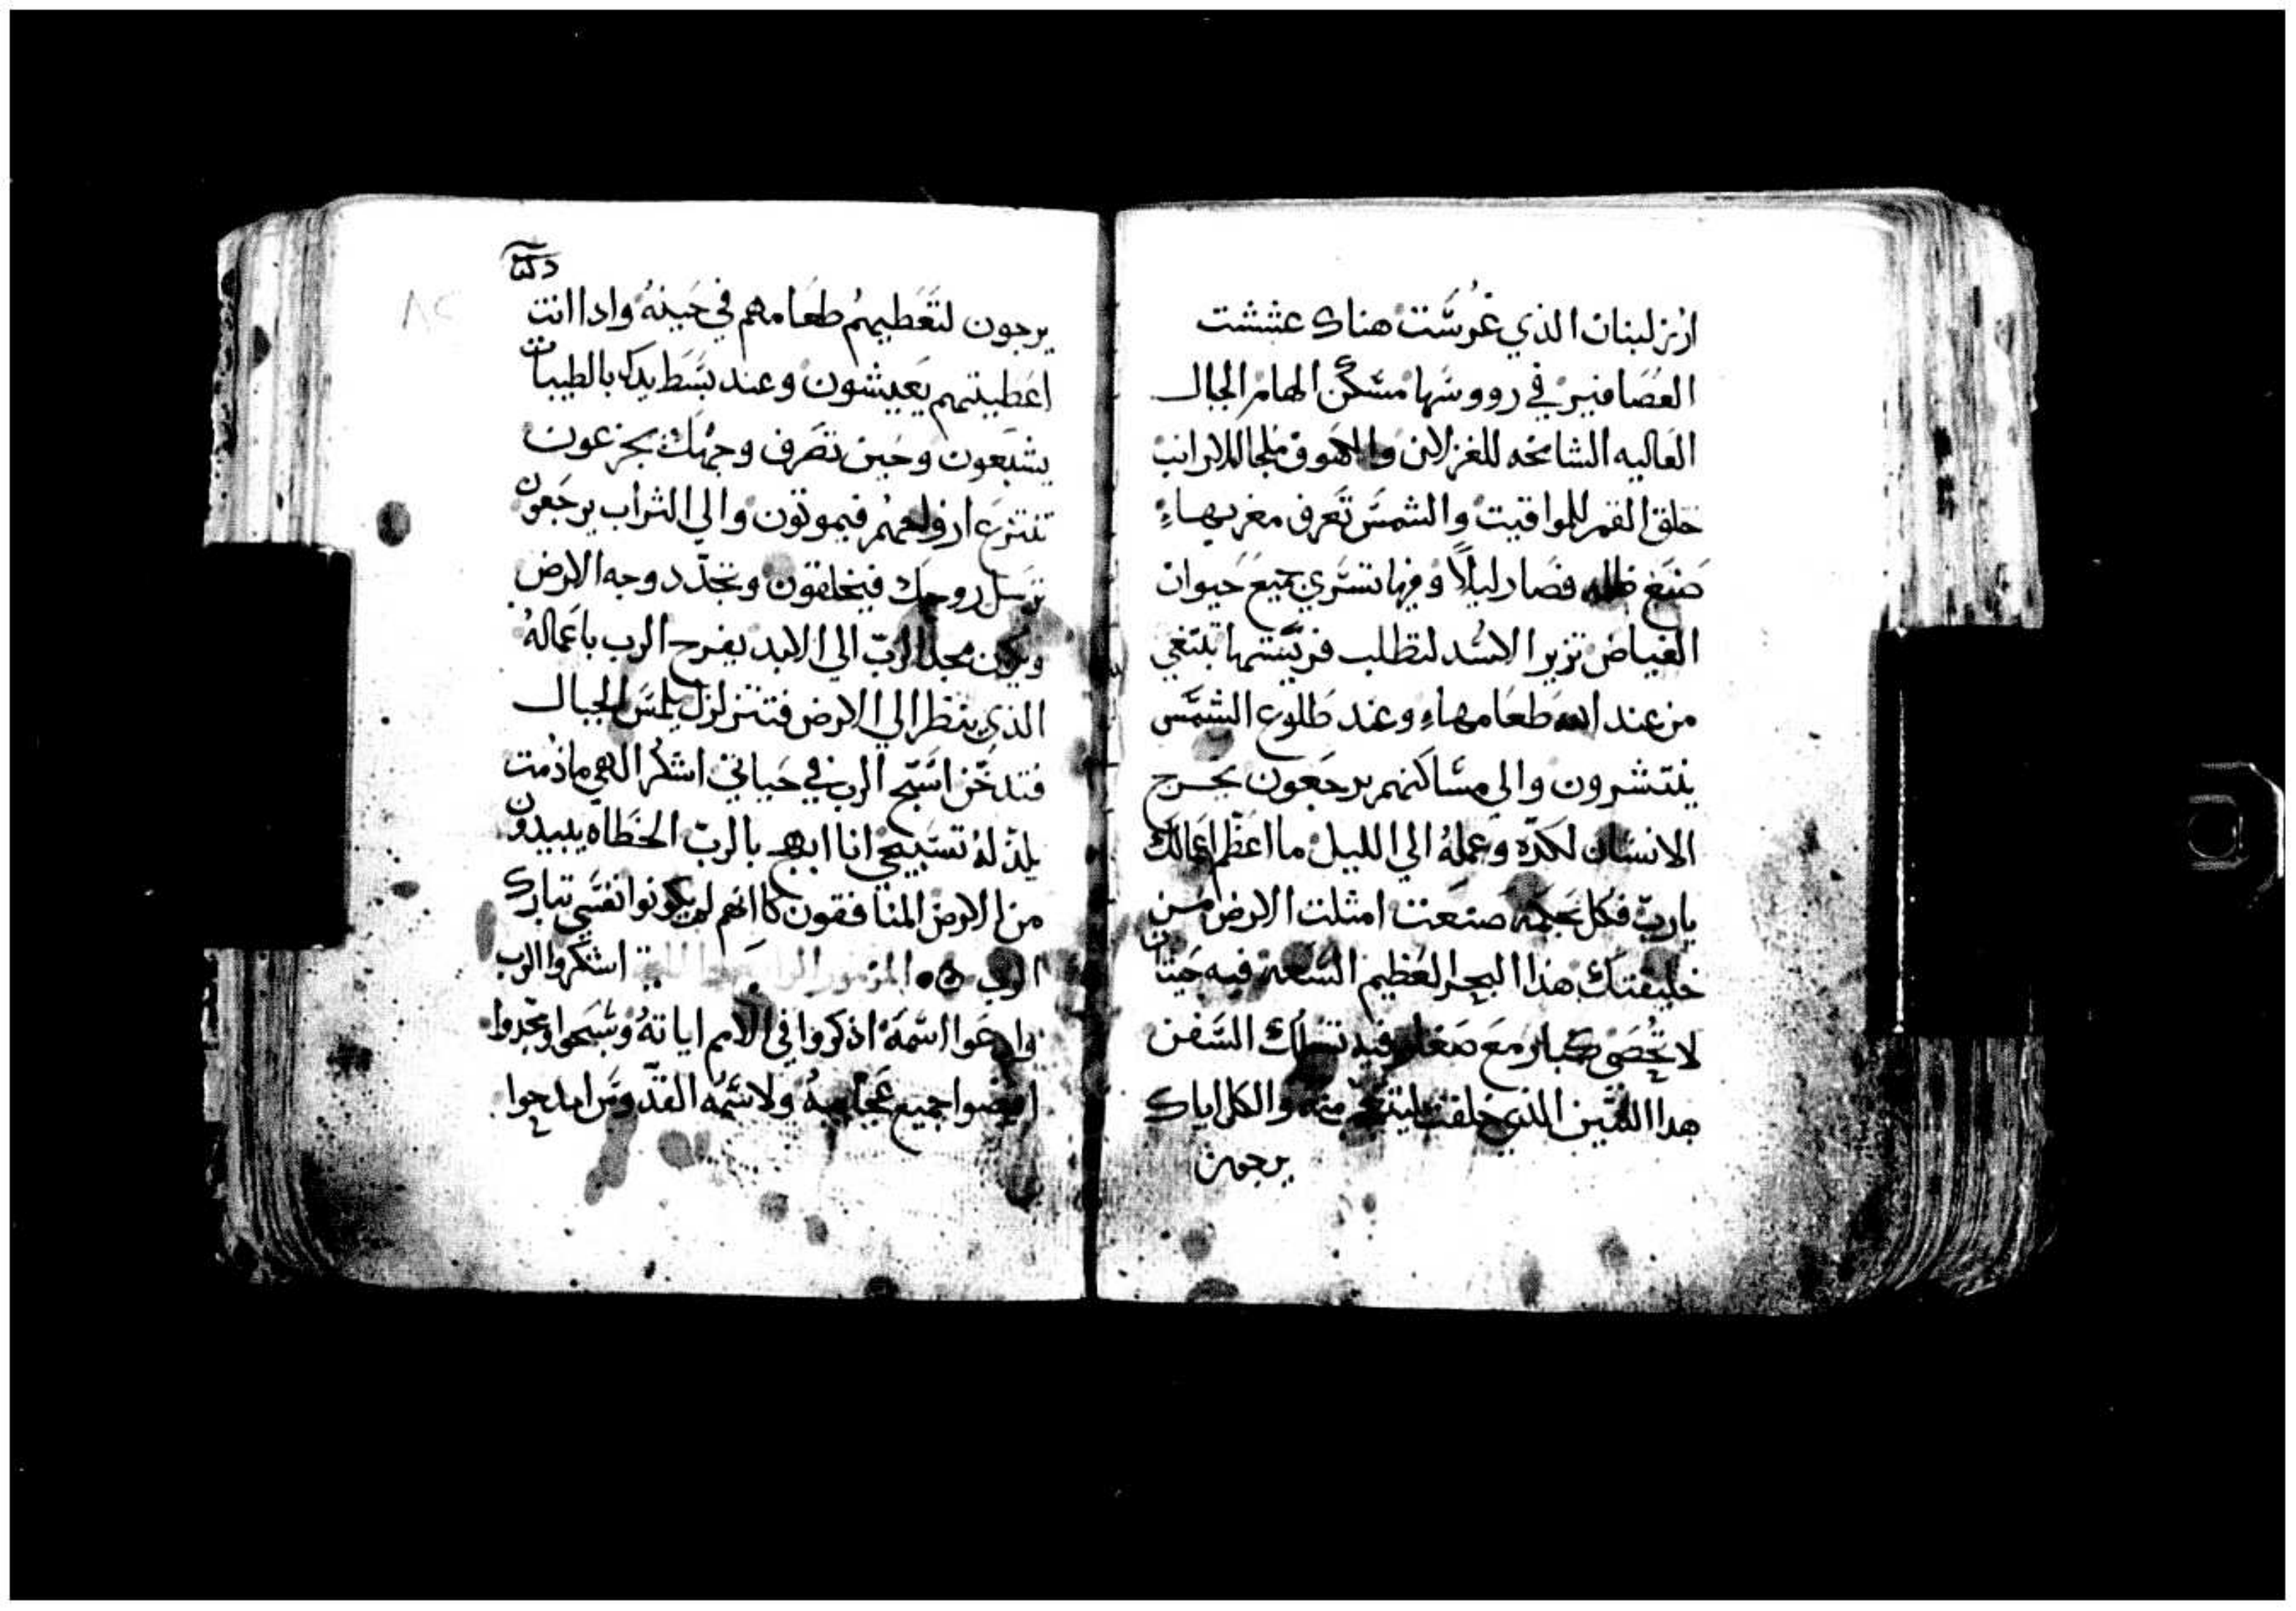 ارز لبنان الذي غرست هناك عششت
العصافير في رووسها مسكن الهام الجبال
العاليه الشامخه للغزلان والاهوق ملجا للارانب
خلق القمر للمواقيت والشمس تعرف مغربهاء
صنع ظلمه فصار ليلاً وفيها تسري جميع حيوان
الغياض تزير الاسد لتطلب فريستها تبتغي
من عند الله طعامهاء وعند طلوع الشمس
ينتشرون والي مساكنهم يرجعون يخرج
الانسان لكده وعمله الي الليل ما اعظم اعمالك
يارب فكل بحكمه صنعت امتلت الارض من
خليقتك هذا البحر العظيم السعة فيه حيتان
لا تحصى كبار مع صغار وفيه تسلك السفن
هدا التنين الذي خلقت منه والكل اياك
يرجون
يرجون لتعطيهم طعامهم في حينه وادا انت
اعطيتهم يعيشون وعند بسط يدك بالطيبات
يشبعون وحين تصرف وجهك يجزعون
تنتزع ارواحهم فيموتون والي التراب يرجعون
ترسل روحك فيخلقون وتجدد وجه الارض
ويكون مجد الرب الي الابد يفرح الرب باعماله
الذي ينظر الي الارض فتتزلزل يلمس الجبال
فتدخن اسبح الرب في حياتي اشكر الهي مادمت
يلذ له تسبيحي انا ابتهج بالرب الخطاه يبيدون
من الارض المنافقون كاانهم لم يكونوا نفسي تبارك
الرب المزمور اشكروا الرب
وادعوا اسمه اذكروا في الامم اياته وسبحوا ومجدوا
جميع عجايبه ولاسمه القدوس امدحوا